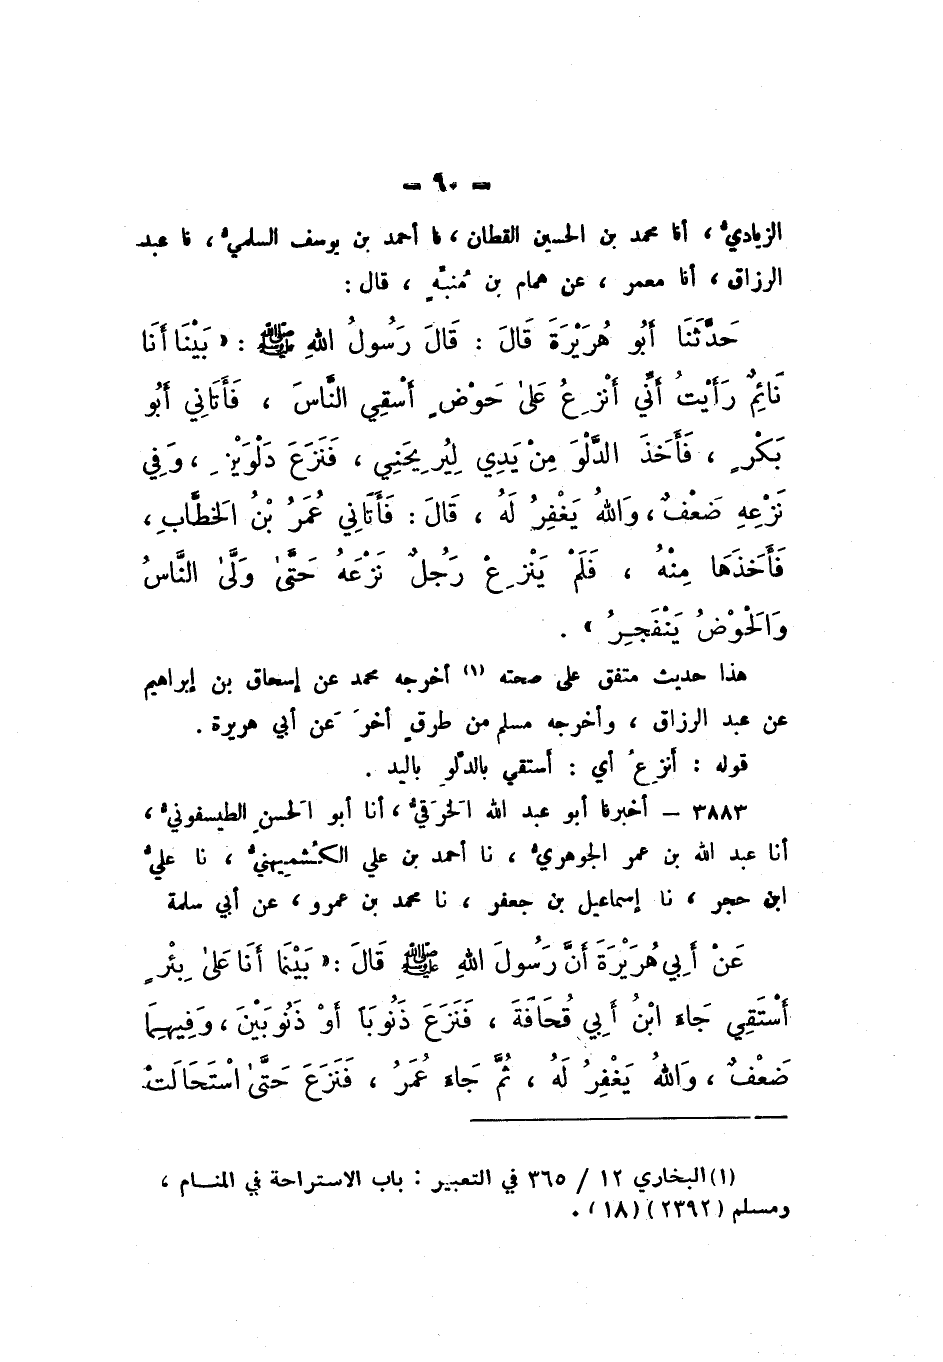 - ٩٠ -
الزياديُّ ، أنا محمد بن الحسين القطان ، نا أحمد بن يوسف السلميُّ ، نا عبد
الرزاق ، أنا معمر ، عن همام بن مُنبِّهٍ ، قال :
حَدَّثَنَا أَبُو هُرَيْرَةَ قَالَ : قَالَ رَسُولُ اللهِ ﷺ : « بَيْنَا أَنَا
نَائِمٌ رَأَيْتُ أَنِّي أَنْزِعُ عَلىٰ حَوْضٍ أَسْقِي النَّاسَ ، فَأَتَانِي أَبُو
بَكْرٍ ، فَأَخَذَ الدَّلْوَ مِنْ يَدِي لِيُرِيحَنِي ، فَنَزَعَ دَلْوَيْنِ ، وَفِي
نَزْعِهِ ضَعْفٌ ، وَاللهُ يَغْفِرُ لَهُ ، قَالَ : فَأَتَانِي عُمَرُ بْنُ الخَطَّابِ ،
فَأَخَذَهَا مِنْهُ ، فَلَمْ يَنْزِعْ رَجُلٌ نَزْعَهُ حَتَّىٰ وَلَّىٰ النَّاسُ
وَالْحَوْضُ يَنْفَجِرُ » .
هذا حديث متفق على صحته (١) أخرجه محمد عن إسحاق بن إبراهيم
عن عبد الرزاق ، وأخرجه مسلم من طرقٍ أخرَ عَن أبي هريرة .
قوله : أنزِعُ أي : أستقي بالدَّلوِ باليد .
٣٨٨٣ – أخبرنا أبو عبد الله الخِرَقيُّ ، أنا أبو الحَسنِ الطيسفونيُّ ،
أنا عبد الله بن عمر الجوهريُّ ، نا أحمد بن علي الكُشْمِيهنيُّ ، نا عليُّ
ابن حجر ، نا إسماعيل بن جعفر ، نا محمد بن عمرو ، عن أبي سلمة
عَنْ أَبِي هُرَيْرَةَ أَنَّ رَسُولَ اللهِ ﷺ قَالَ : « بَيْنَمَا أَنَا عَلىٰ بِئْرٍ
أَسْتَقِي جَاءَ ابْنُ أَبِي قُحَافَةَ ، فَنَزَعَ ذَنُوبَاً أَوْ ذَنُوبَيْنِ ، وَفِيهِمَا
ضَعْفٌ ، وَاللهُ يَغْفِرُ لَهُ ، ثُمَّ جَاءَ عُمَرُ ، فَنَزَعَ حَتَّىٰ اسْتَحَالَتْ
(١) البخاري ١٢ / ٣٦٥ في التعبير : باب الاستراحة في المنام ،
ومسلم (٢٣٩٢) (١٨) .